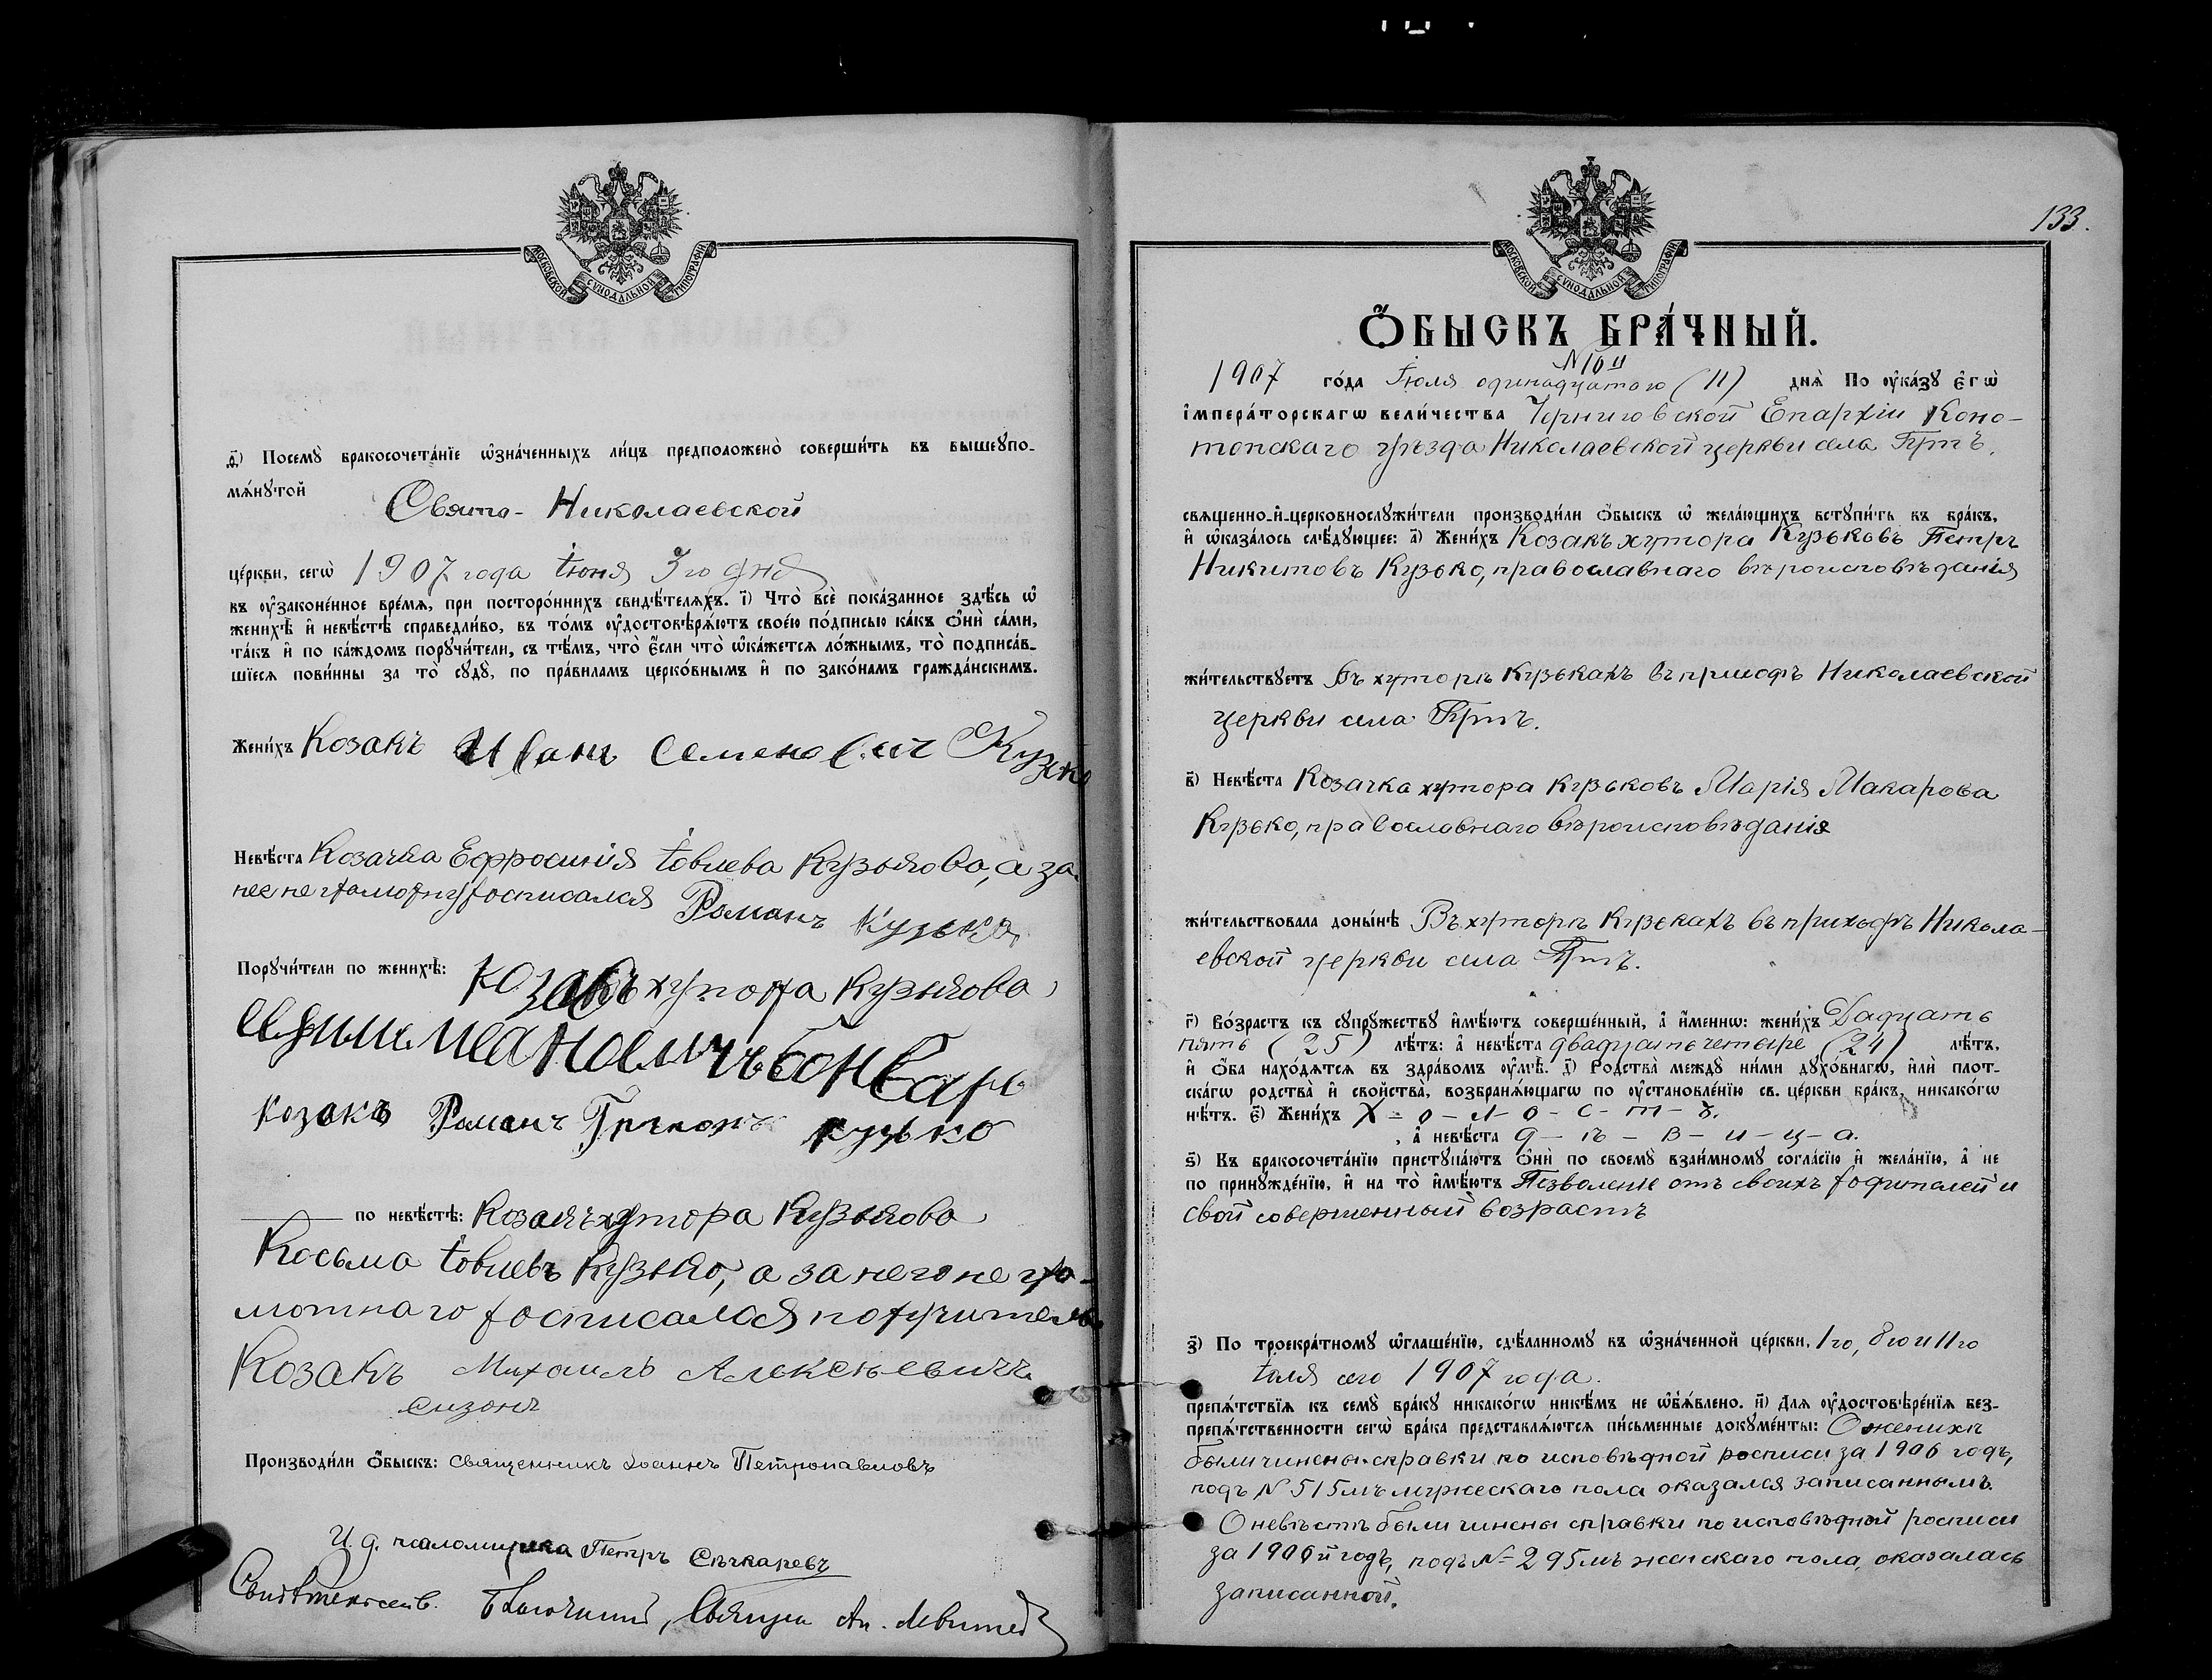 МОСКОВСКОЙ СѴНОДАЛЬНОЙ ТИПОГРАФІИ
ѳ҃) Посемꙋ̀ бракосочета́нїе ѡ҆зна́ченныхъ ли́цъ предположено̀ соверши́ть въ вышеупо-
мѧ́нꙋтой
Свято-Николаевской
це́ркви, сегѡ̀ 1907 года Іюня 3го дня
въ ᲂу҆законе́нное вре́мѧ, при посторо́ннихъ свидѣ́телѧхъ. і҃) Что̀ всѐ пока́занное здѣ́сь ѡ҆
женихѣ̀ и҆ невѣ́стѣ справедли́во, въ то́мъ ᲂу҆достовѣрѧ́ютъ свое́ю по́дписью ка́къ ѻ҆нѝ са́ми,
та́къ и҆ по ка́ждомъ порꙋчи́тели, съ тѣ́мъ, что̀ є҆́сли что̀ ѡ҆ка́жетсѧ ло́жнымъ, то̀ подписа́в-
шїесѧ пови́нны за то̀ сꙋдꙋ̀, по пра́виламъ церко́внымъ и҆ по зако́намъ гражда́нскимъ.
Жени́хъ Козакъ Иванъ Семенович Кузько
Невѣ́ста Козачка Ефросинія Іовлева Кузькова, а за
нее неграмотную росписался Романъ Кузько
Порꙋчи́тели по женихѣ̀: Козакъ хутора Кузькова,
Иванович Бонdarь
козакъ Романъ Кузько
по невѣ́стѣ: Козакъ хутора Кузькова
Косьма Іовлевъ Кузько, а за него негра-
мотнаго росписался поручитель
Козакъ Михаилъ Алексеевичъ
Сизонъ
Производи́ли ѻ҆́быскъ: Священникъ Іоаннъ Петропавловъ
И. д. псаломщика Петръ Сѣчкаревъ
Свящ. Ан. Левитск
133.
МОСКОВСКОЙ СѴНОДАЛЬНОЙ ТИПОГРАФІИ
Ѻ҆́БЫСКЪ БРА́ЧНЫЙ.
N 10й
1907 го́да Іюля одинадцатого (11) днѧ̀ По ᲂу҆ка́зꙋ є҆гѡ̀
і҆мпера́торскагѡ вели́чества Черниговской Епархіи Коно-
топскаго уѣзда Николаевской церкви села Гутъ.
свѧщенно-и҆-церковнослꙋжи́тели производи́ли ѻ҆́быскъ ѡ҆ жела́ющихъ встꙋпи́ть въ бра́къ,
и҆ ѡ҆каза́лось слѣ́дꙋющее: а҃) Жени́хъ Козакъ хутора Кузьковъ Петръ
Никитовъ Кузько, православнаго вѣроисповѣданія
жи́тельствꙋетъ Въ хуторѣ Кузькахъ въ приходѣ Николаевской
церкви села Гутъ.
в҃) Невѣ́ста Козачка хутора Кузьковъ Марія Макарова
Кузько, православнаго вѣроисповѣданія
жи́тельствовала доны́нѣ Въ хуторѣ Кузькахъ въ приходѣ Никола-
евской церкви села Гутъ.
г҃) Во́зрастъ къ сꙋпрꙋ́жествꙋ и҆мѣ́ютъ соверше́нный, а҆ и҆́меннѡ: жени́хъ Дадцать
пять (25) лѣ́тъ: а҆ невѣ́ста двадцать четыре (24) лѣ́тъ,
и҆ ѻ҆́ба нахо́дѧтсѧ въ здра́вомъ ᲂу҆мѣ̀. д҃) Родства̀ междꙋ̀ ни́ми дꙋхо́внагѡ, и҆лѝ плот-
ска́гѡ родства̀ и҆ сво́йства, возбранѧ́ющагѡ по ᲂу҆становле́нїю св. це́ркви бра́къ, никако́гѡ
нѣ́тъ. є҃) Жени́хъ Х-о-л-о-с-т-ъ.
, а҆ невѣ́ста д-ѣ-в-и-ц-а.
ѕ҃) Къ бракосочета́нїю пристꙋпа́ютъ ѻ҆нѝ по своемꙋ̀ взаи́мномꙋ согла́сїю и҆ жела́нїю, а҆ не
по принꙋжде́нїю, и҆ на то̀ и҆мѣ́ютъ Позволеніе отъ своихъ родителей и
свой совершенный возрастъ
з҃) По троекра́тномꙋ ѡ҆глаше́нїю, сдѣ́ланномꙋ въ ѡ҆зна́ченной це́ркви, 1го, 8го и 11го
Іюля сего 1907 года.
препѧ́тствїѧ къ семꙋ̀ бра́кꙋ никако́гѡ никѣ́мъ не ѡ҆бъѧ́влено. и҃) Для ᲂу҆достовѣре́нїѧ без-
препѧ́тственности сегѡ̀ бра́ка представлѧ́ютсѧ пи́сьменные докꙋме́нты: О женихѣ
были чинены справки по исповѣдной росписи за 1906 годъ,
подъ N 515мъ мужескаго пола оказался записаннымъ.
О невѣстѣ были чинены справки по исповѣдной росписи
за 1906й годъ, подъ № 295мъ женскаго пола, оказалась
записанной.